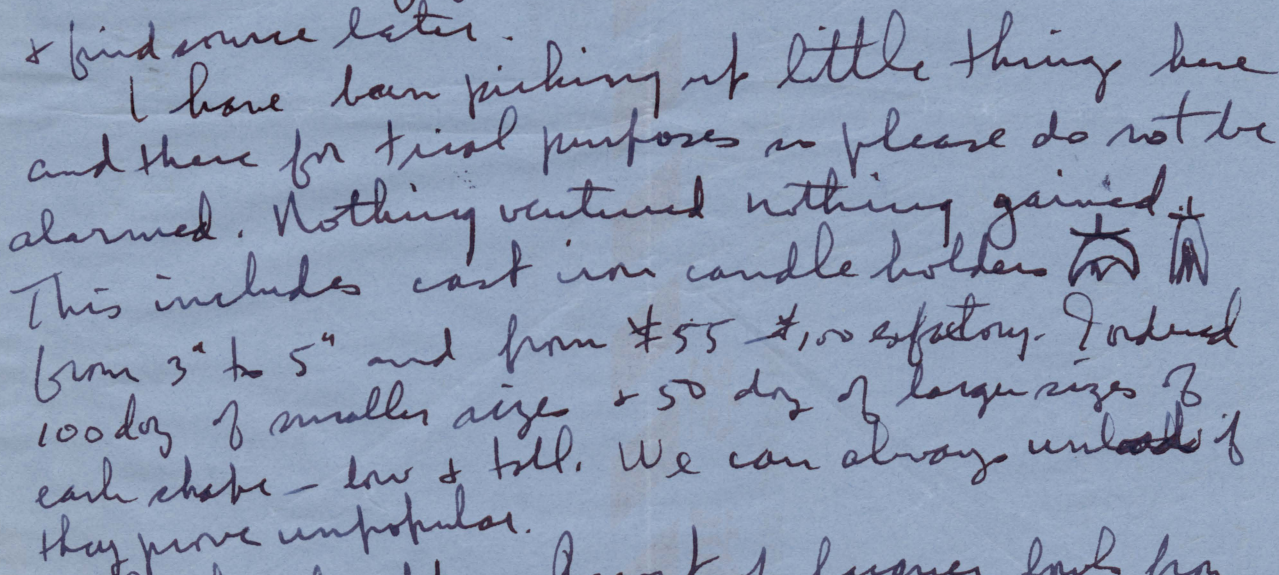 & find source later.
I have been picking up little things here
and there for trial purposes so please do not be
alarmed. Nothing ventured nothing gained.
This includes cast iron candle holders
from 3" to 5" and from $.55 - $1.00 exfactory. I ordered
100 doz of smaller sizes & 50 doz of larger sizes of
each shape — low & tall. We can always unload if
they prove unpopular.
of lacquer bowls from